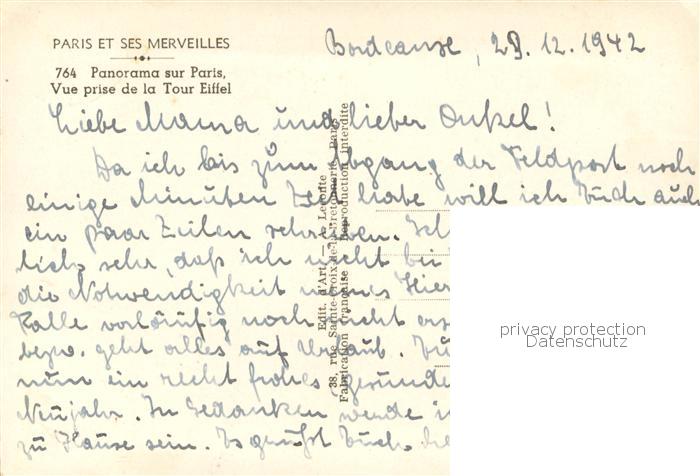 PARIS ET SES MERVEILLES
764 Panorama sur Paris,
Vue prise de la Tour Eiffel
Bordeaux, 29.12.1942
Liebe Mama und lieber Onkel!
Da ich bis zum Abgang der Feldpost noch
einige Minuten Zeit habe will ich Euch auch
ein paar Zeilen schreiben.
lich sehr, daß ich nicht bei
die Notwendigkeit meines Hier
Falle vorläufig noch nicht
bezw. geht alles auf Urlaub.
nun ein recht frohes gesunde
Neujahr. In Gedanken werde
zu Hause sein. Es grüßt Euch
Edit. d'Art. — A. Leconte
38, rue Sainte-Croix-de-la-Bretonnerie, Paris
Fabrication française - Reproduction interdite
privacy protection
Datenschutz